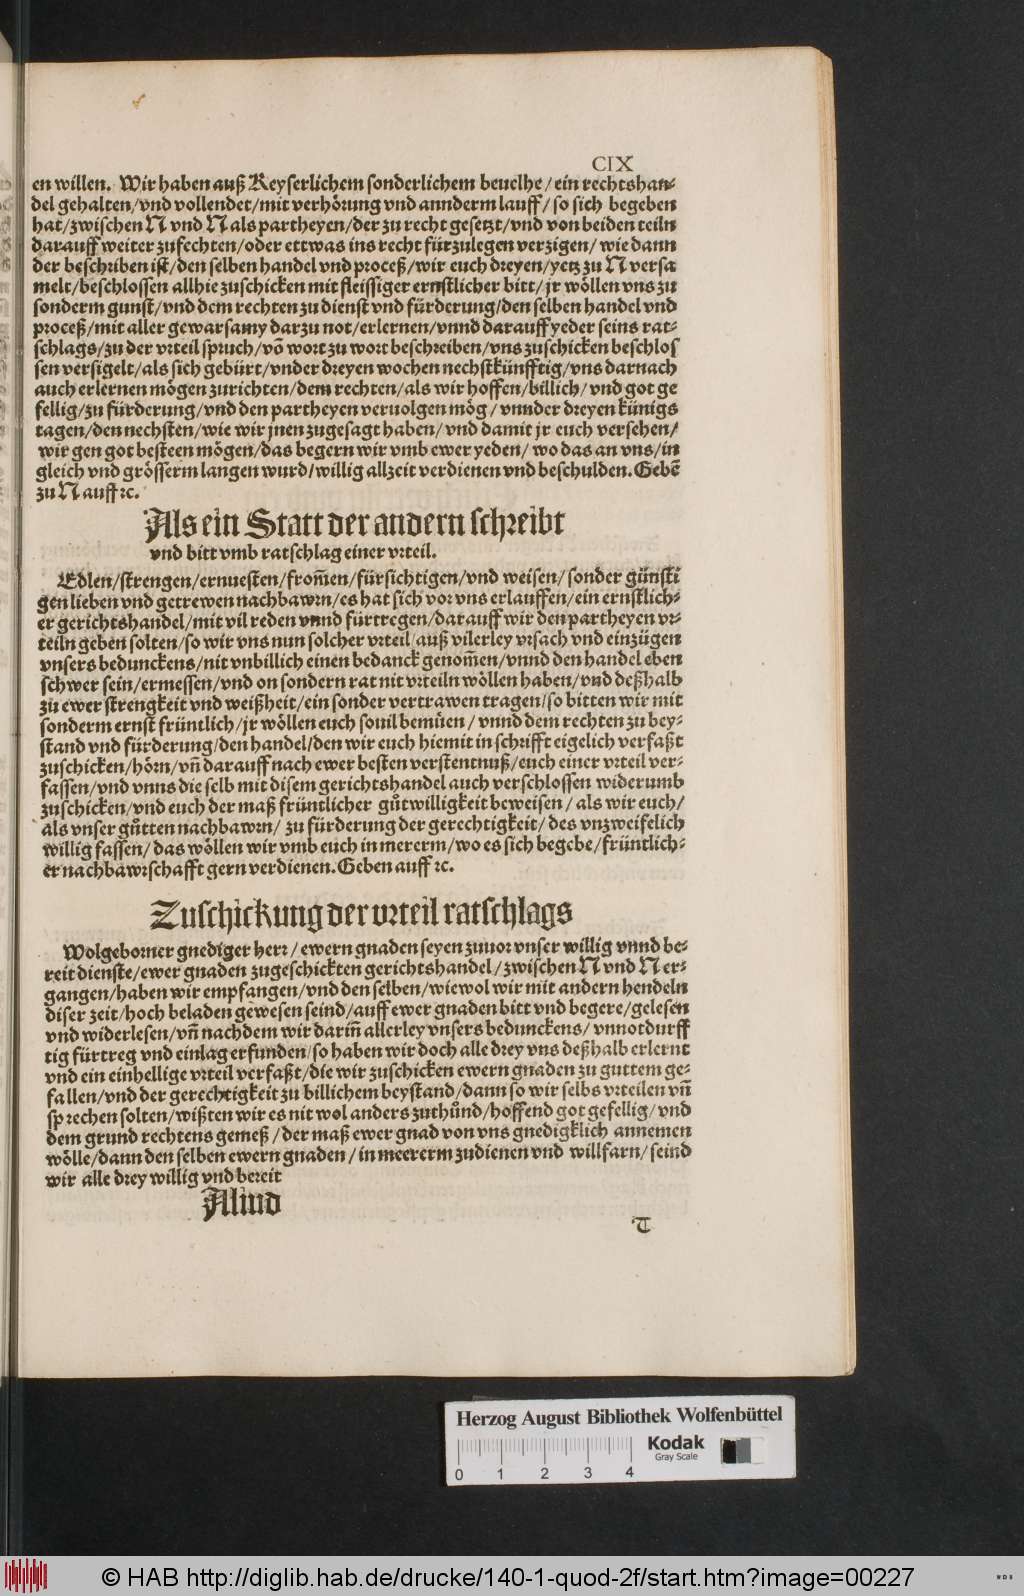 CIX
en willen. Wir haben auß Keyserlichem sonderlichem beuelhe / ein rechtshan-
del gehalten/vnd vollendet/mit verhörung vnd annderm lauff/ so sich begeben
hat/zwischen N vnd N als partheyen/der zu recht gesetzt/vnd von beiden teiln
darauff weiter zufechten/oder ettwas ins recht fürzulegen verzigen/ wie dann
der beschriben ist/den selben handel vnd proceß/wir euch dreyen/yetz zu N versa
melt/beschlossen allhie zuschicken mit fleissiger ernstlicher bitt/ jr wöllen vns zu
sonderm gunst/vnd dem rechten zu dienst vnd fürderung/den selben handel vnd
proceß/mit aller gewarsamy darzu not/erlernen/vnnd darauff yeder seins rat-
schlags/zu der vrteil spruch/võ wort zu wort beschreiben/vns zuschicken beschlos
sen versigelt/als sich gebürt/vnder dreyen wochen nechstkünfftig/vns darnach
auch erlernen mögen zurichten/dem rechten/als wir hoffen/billich/ vnd got ge
fellig/zu fürderung/vnd den partheyen veruolgen mög/ vnnder dreyen künigs
tagen/den nechsten/wie wir jnen zugesagt haben/ vnd damit jr euch versehen/
wir gen got besteen mögen/das begern wir vmb ewer yeden/ wo das an vns/in
gleich vnd grösserm langen wurd/willig allzeit verdienen vnd beschulden. Gebẽ
zu N auff ꝛc.
Als ein Statt der andern schreibt
vnd bitt vmb ratschlag einer vrteil.
Edlen/strengen/ernuesten/from̃en/fürsichtigen/vnd weisen/ sonder günsti
gen lieben vnd getrewen nachbawrn/es hat sich vor vns erlauffen/ein ernstlich-
er gerichtshandel/mit vil reden vnnd fürtregen/darauff wir den partheyen vr-
teiln geben solten/so wir vns nun solcher vrteil/auß vilerley vrsach vnd einzügen
vnsers bedunckens/nit vnbillich einen bedanck genom̃en/vnnd den handel eben
schwer sein/ermessen/vnd on sondern rat nit vrteiln wöllen haben/vnd deßhalb
zu ewer strengkeit vnd weißheit/ein sonder vertrawen tragen/so bitten wir mit
sonderm ernst früntlich/jr wöllen euch souil bemüen/ vnnd dem rechten zu bey-
stand vnd fürderung/den handel/den wir euch hiemit in schrifft eigelich verfaßt
zuschicken/hörn/vñ darauff nach ewer besten verstentnuß/euch einer vrteil ver-
fassen/vnd vnns die selb mit disem gerichtshandel auch verschlossen widerumb
zuschicken/vnd euch der maß früntlicher gůtwilligkeit beweisen / als wir euch/
als vnser gůtten nachbawrn/ zu fürderung der gerechtigkeit/ des vnzweifelich
willig fassen/ das wöllen wir vmb euch in mererm/wo es sich begebe/früntlich-
er nachbawrschafft gern verdienen. Geben auff ꝛc.
Zuschickung der vrteil ratschlags
Wolgeborner gnediger herr/ ewern gnaden seyen zuuor vnser willig vnnd be-
reit dienste/ewer gnaden zugeschickten gerichtshandel/zwischen N vnd N er-
gangen/haben wir empfangen/vnd den selben/wiewol wir mit andern hendeln
diser zeit/hoch beladen gewesen seind/auff ewer gnaden bitt vnd begere/gelesen
vnd widerlesen/vñ nachdem wir darin̄ allerley vnsers bedunckens/ vnnotdurff
tig fürtreg vnd einlag erfunden/so haben wir doch alle drey vns deßhalb erlernt
vnd ein einhellige vrteil verfaßt/die wir zuschicken ewern gnaden zu guttem ge-
fallen/vnd der gerechtigkeit zu billichem beystand/dann so wir selbs vrteilen vñ
sprechen solten/wißten wir es nit wol anders zuthůnd/hoffend got gefellig/ vnd
dem grund rechtens gemeß/der maß ewer gnad von vns gnedigklich annemen
wölle/dann den selben ewern gnaden/ in meererm zudienen vnd willfarn/ seind
wir alle drey willig vnd bereit
Aliud
T
Herzog August Bibliothek Wolfenbüttel
Kodak
Gray Scale
0 1 2 3 4
© HAB http://diglib.hab.de/drucke/140-1-quod-2f/start.htm?image=00227